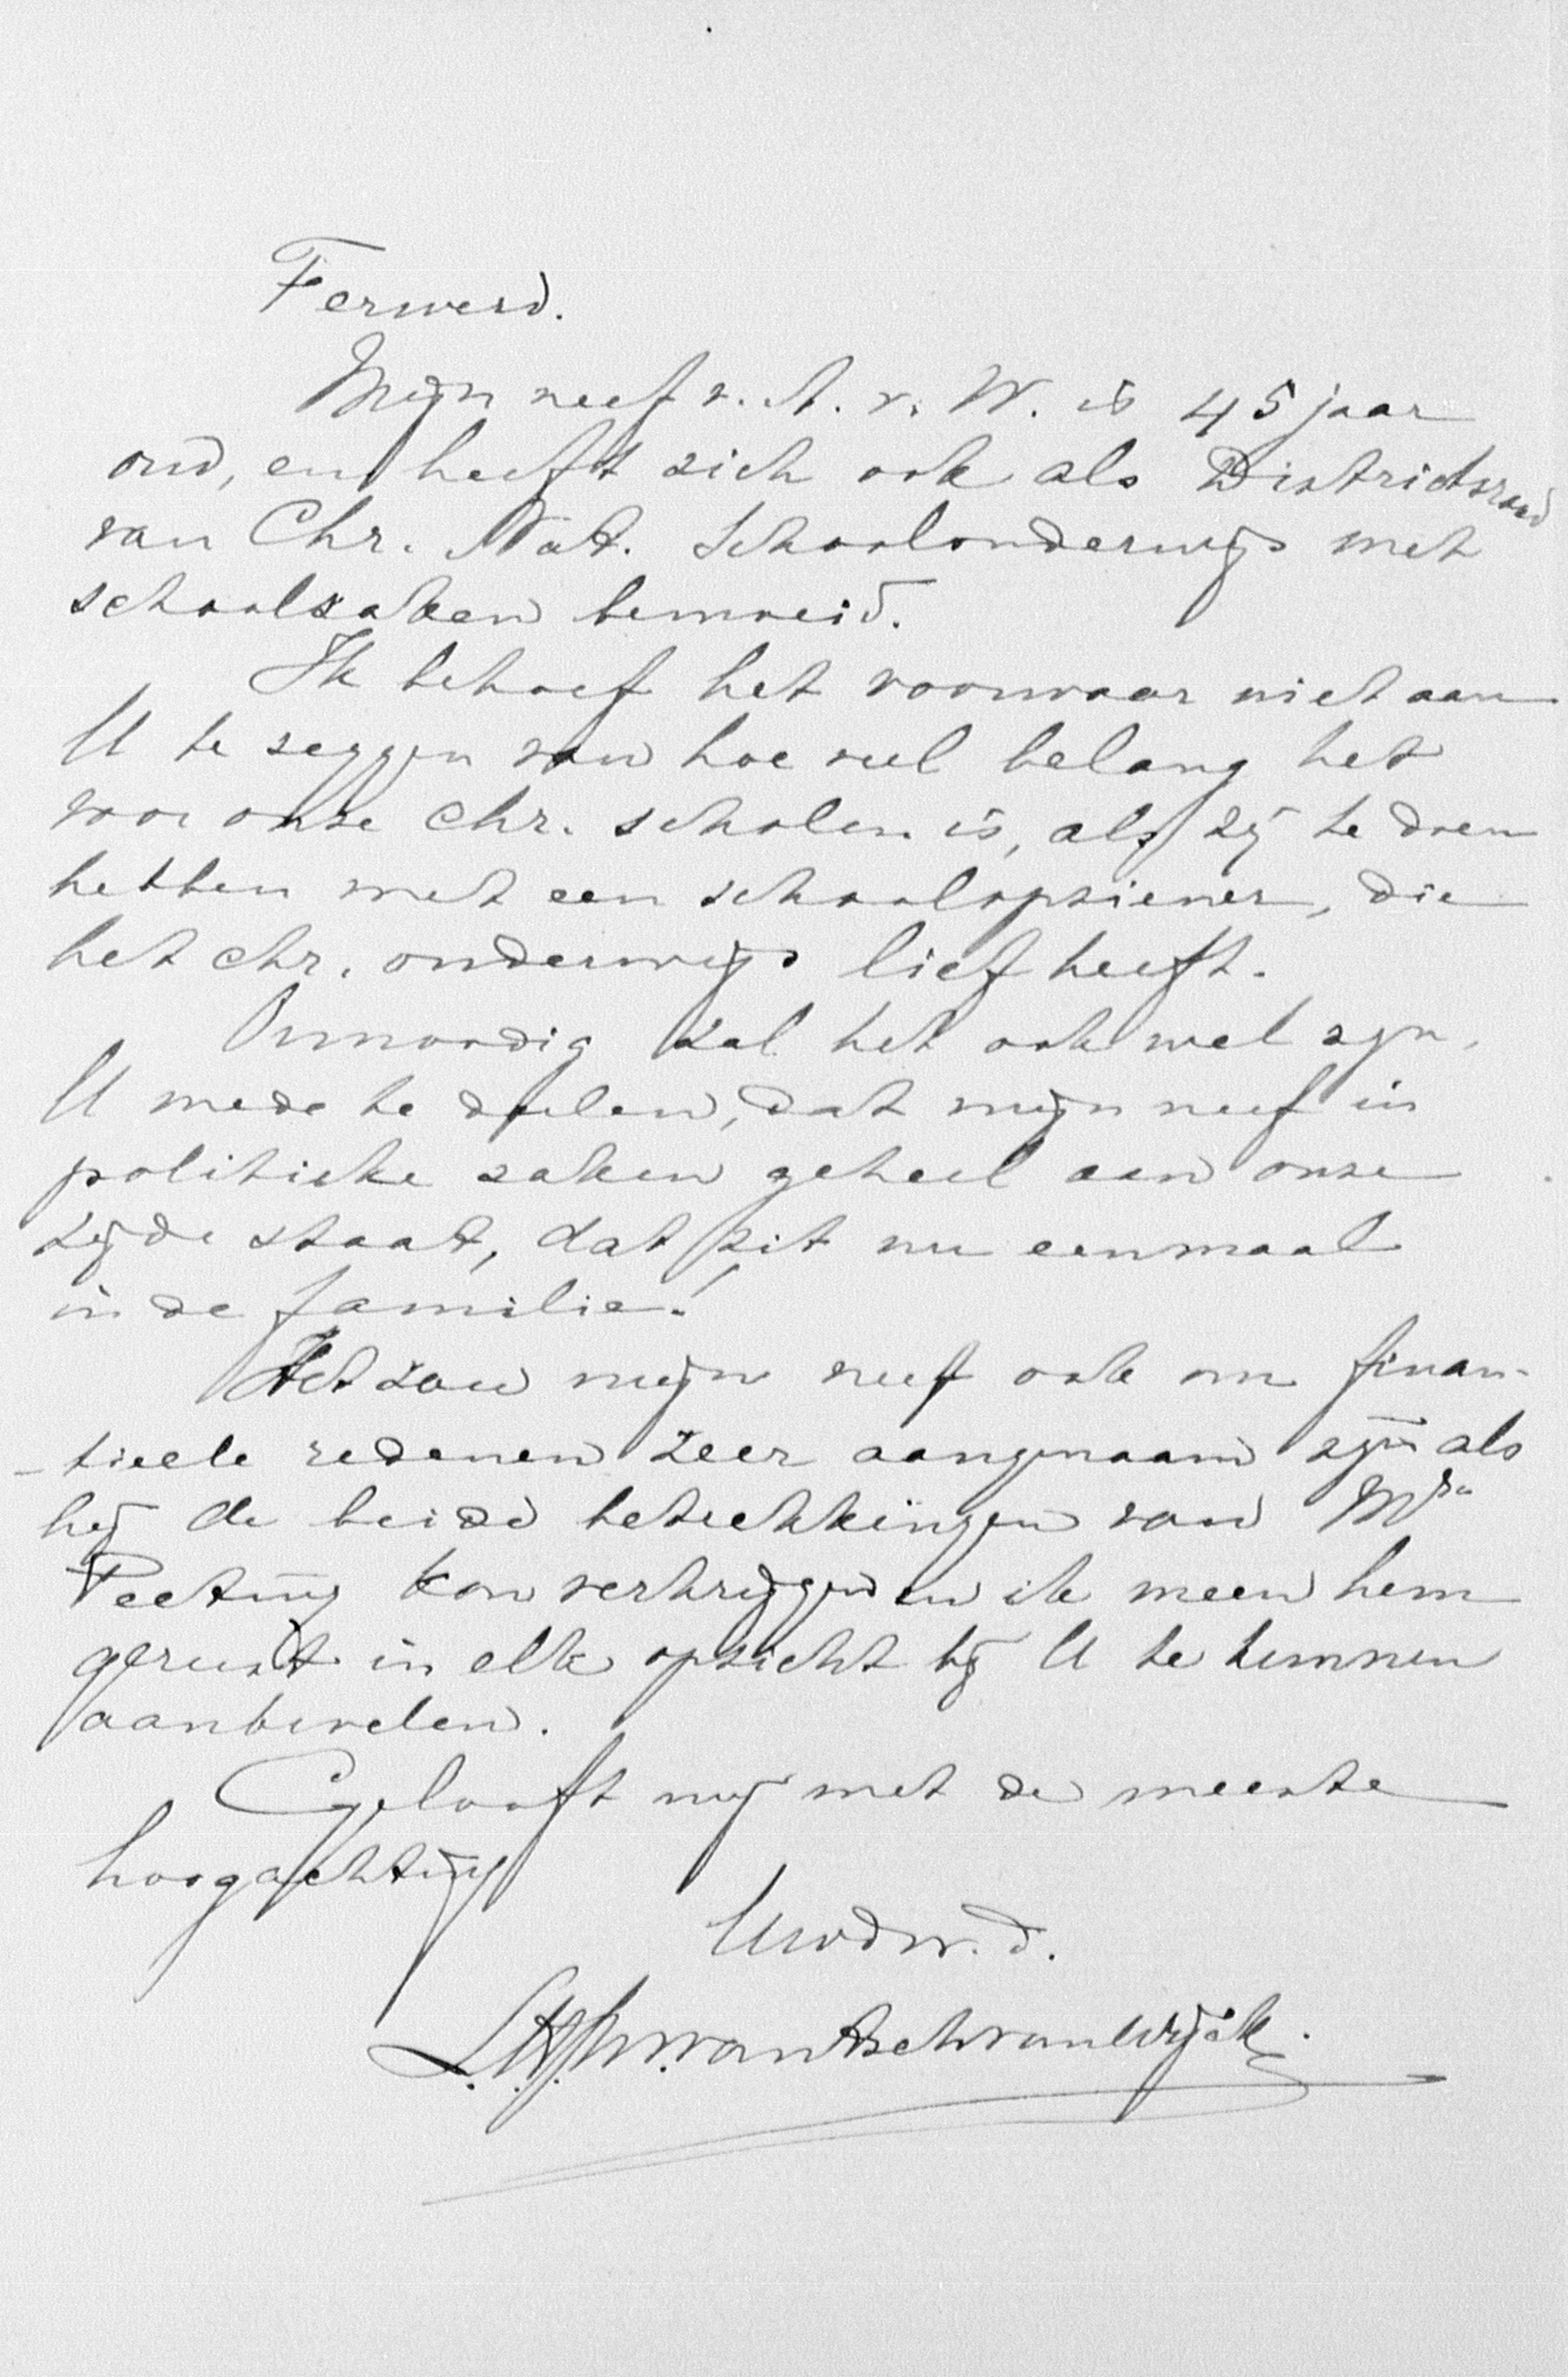 Ferwerd.
Mijn neef v. A. v. W. is 45 jaar
oud, en heeft zich ook als Districtsraad
van Chr. Nat. Schoolonderwijs met
schoolzaken bemoeid.
Ik behoef het voorwaar niet aan
U te zeggen van hoe veel belang het
voor onze chr. scholen is, als zij te doen
hebben met een schoolopziener, die
het chr. onderwijs lief heeft.
Onnoodig zal het ook wel zijn,
U mede te deelen, dat mijn neef in
politieke zaken geheel aan onze
zijde staat, dat zit nu eenmaal
in de familie!
Het zou mijn neef ook om finan-
-tieele redenen zeer aangenaam zijn als
hij de beide betrekkingen van
kon verkrijgen en ik meen hem
gerust in elk opzicht bij U te kunnen
aanbevelen.
Gelooft mij met de meeste
hoogachting
Uwdw. d.
van Asch van Wijck.